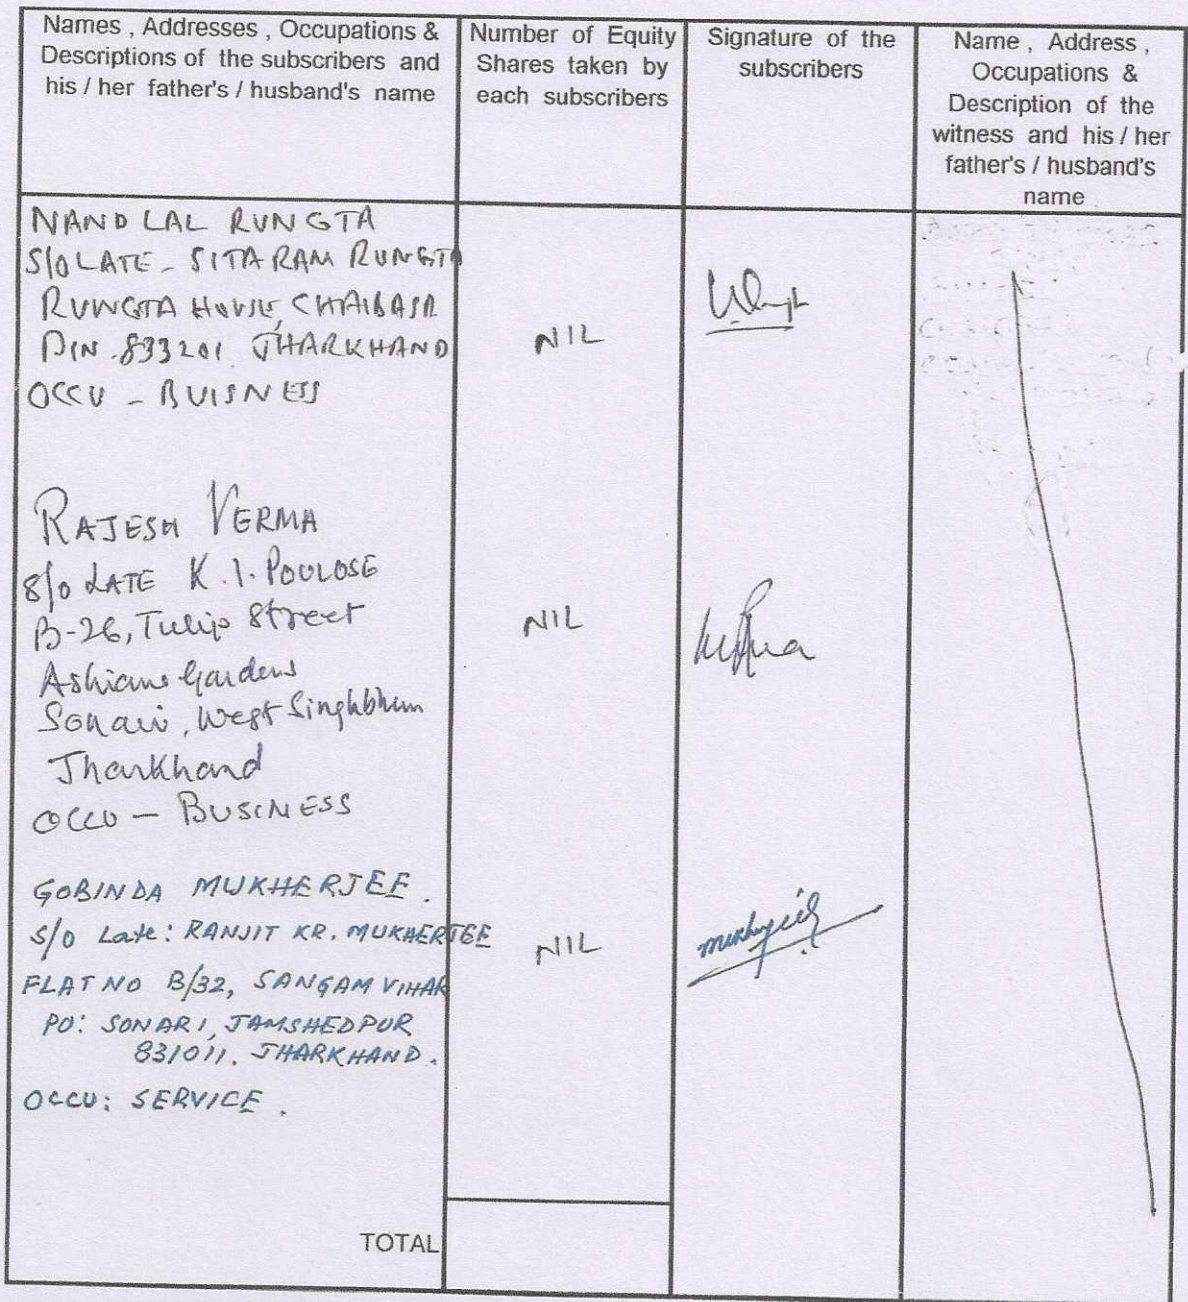 Names , Addresses , Occupations &
Descriptions of the subscribers and
his / her father's / husband's name
Number of Equity
Shares taken by
each subscribers
Signature of the
subscribers
Name , Address ,
Occupations &
Description of the
witness and his / her
father's / husband's
name
NAND LAL RUNGTA
S/O LATE - SITARAM RUNGTA
RUNGTA HOUSE, CHAIBASA
PIN. 833201 JHARKHAND
OCCU - BUISNESS
NIL
RAJESH VERMA
S/O LATE K.I. POULOSE
B-26, Tulip Street
Ashiana Gardens
Sonari, West Singhbhum
Jharkhand
OCCU - BUSINESS
NIL
GOBINDA MUKHERJEE.
S/O Late: RANJIT KR. MUKHERJEE
FLAT NO B/32, SANGAM VIHAR
PO: SONARI, JAMSHEDPUR
831011. JHARKHAND.
OCCU: SERVICE.
NIL
TOTAL